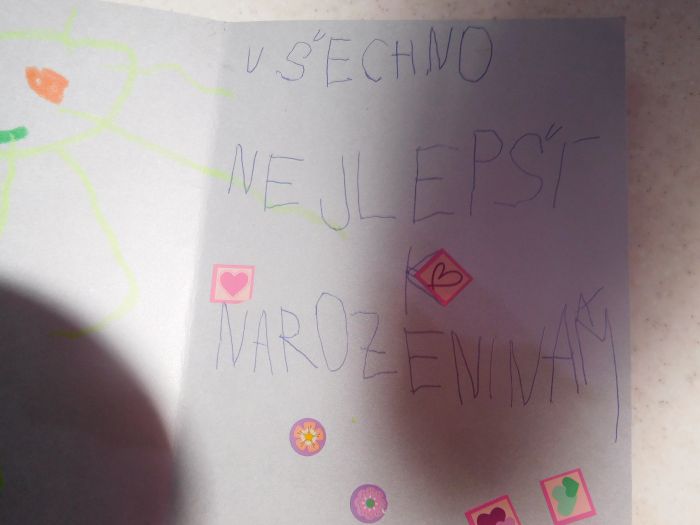 VŠECHNO
NEJLEPŠÍ
K
NAROZENINÁM